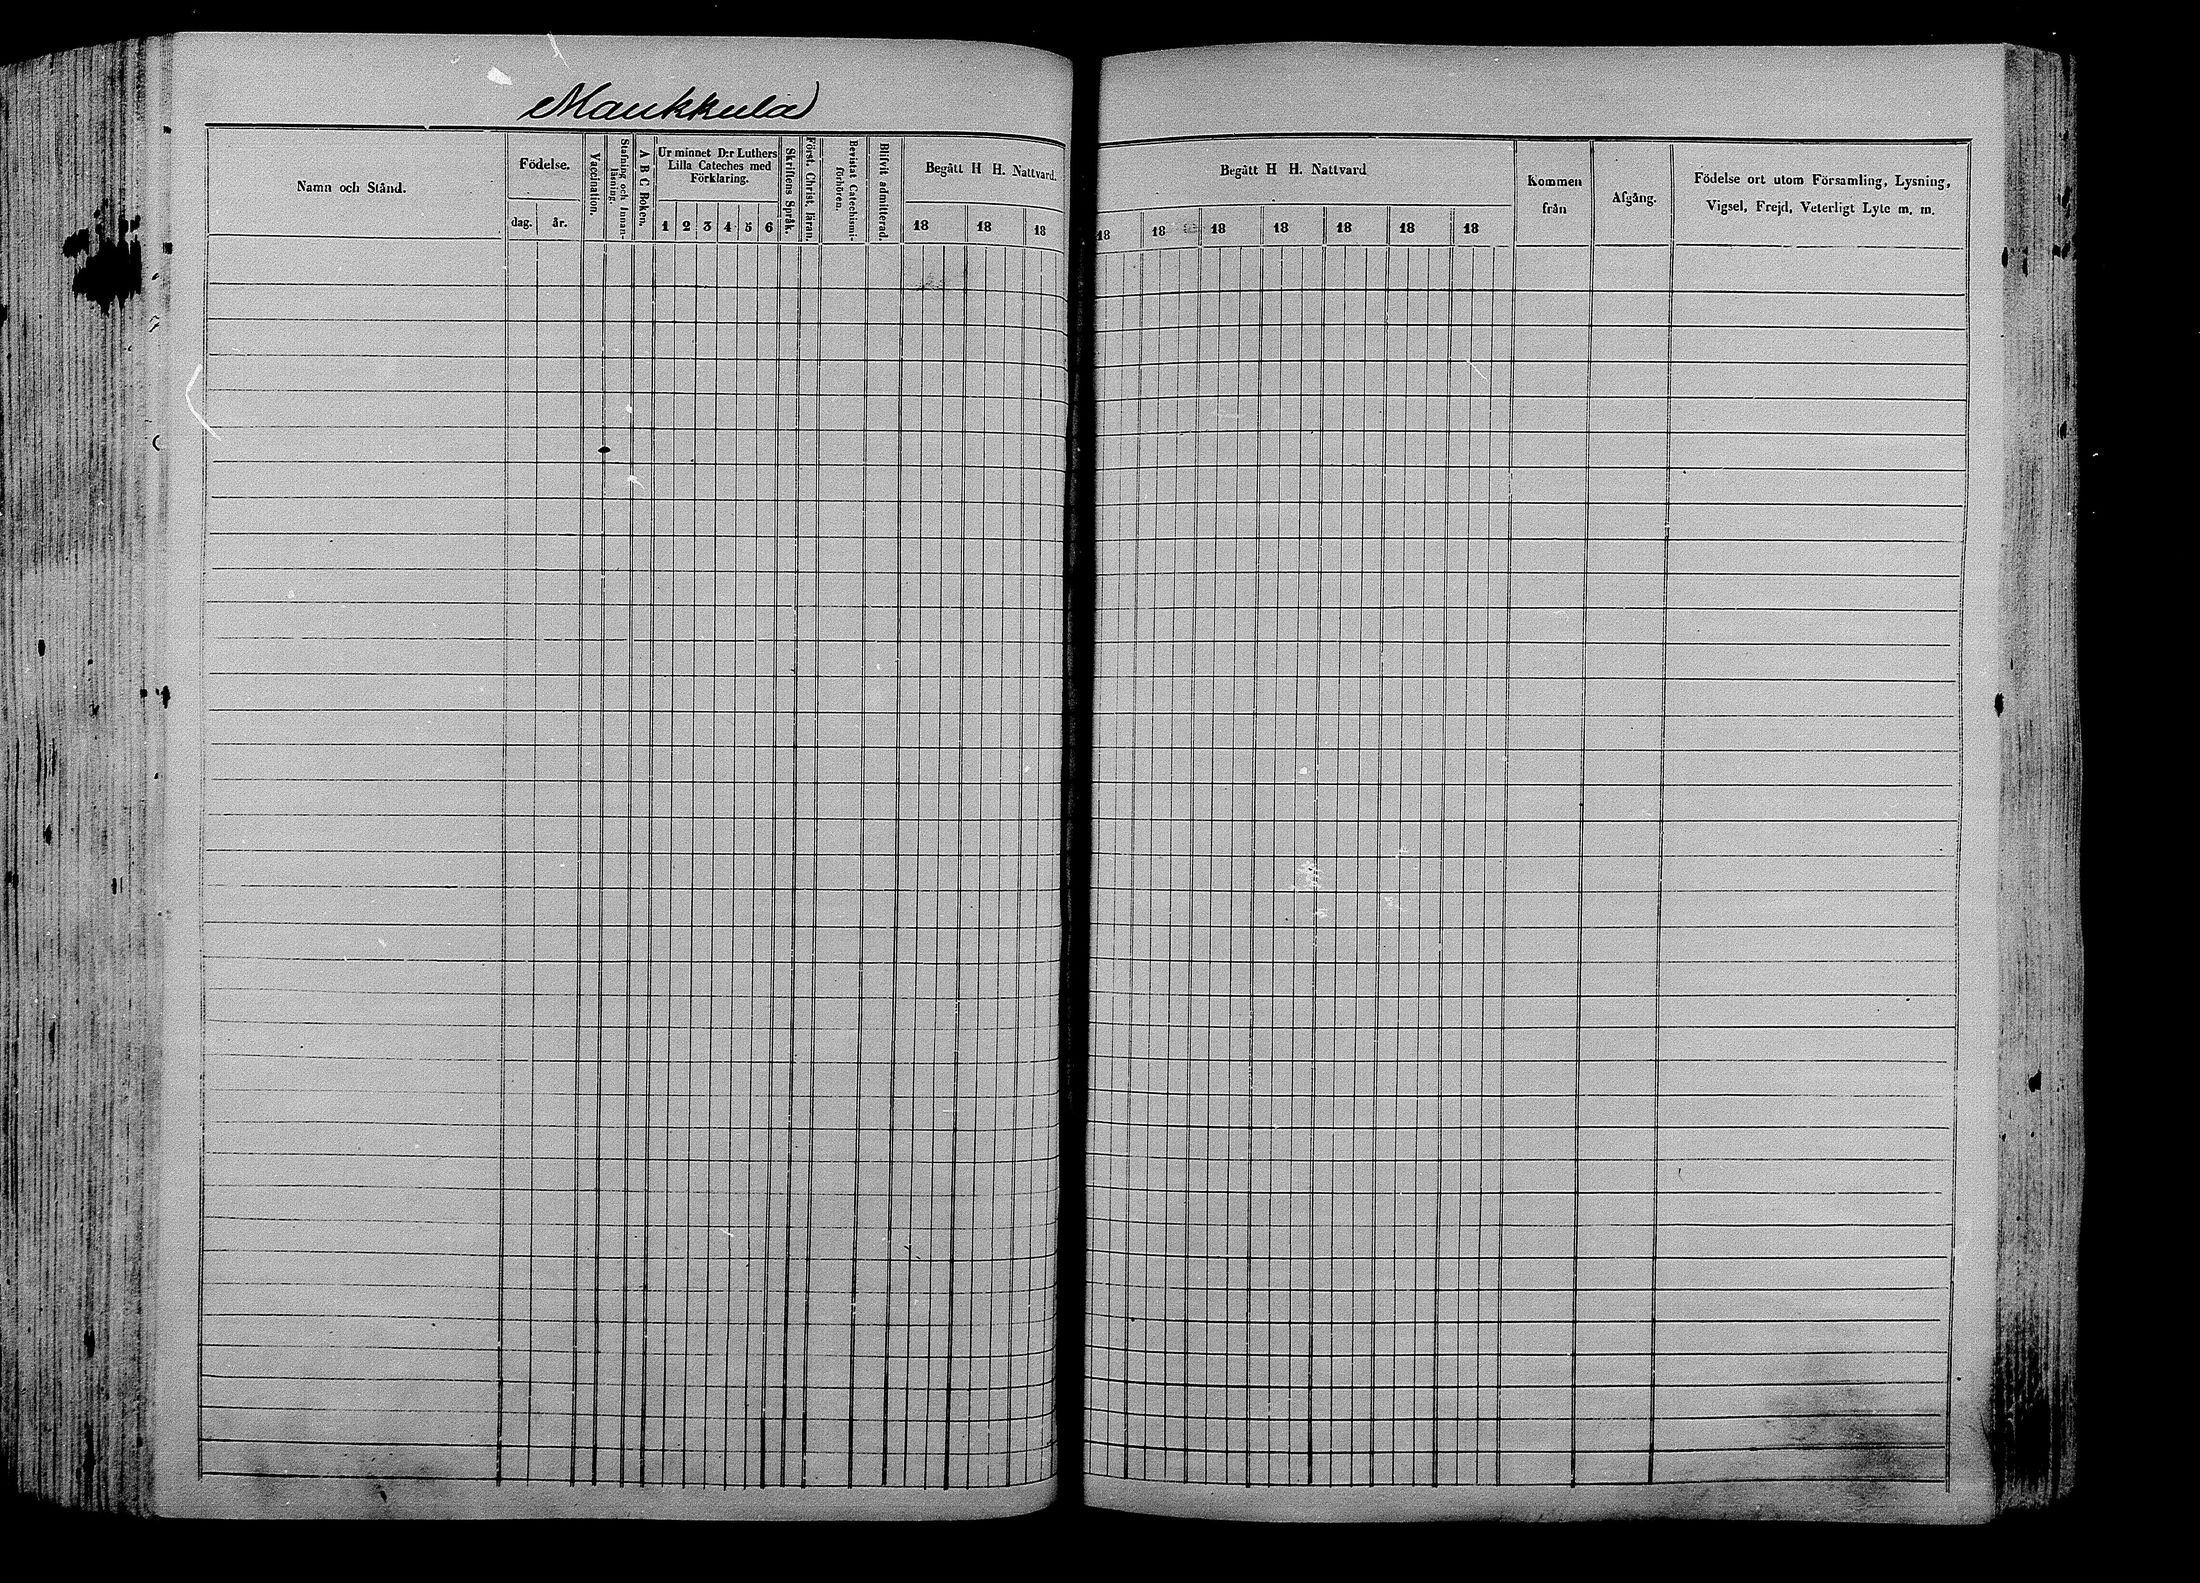 Maukkula
Namn och Stånd.
Födelse.
dag.
år.
Vaccination.
Stafning och Innan-
läsning.
A B C Boken.
Ur minnet D:r Luthers
Lilla Cateches med
Förklaring.
1 2 3 4 5 6
Skriftens Språk.
Först. Christ. läran.
Bevistat Catechismi-
förhören.
Blifvit admitterad.
Begått H H. Nattvard.
18 18 18
Begått H H. Nattvard
18 18 18 18 18 18 18
Kommen
från
Afgång.
Födelse ort utom Församling, Lysning,
Vigsel, Frejd, Veterligt Lyte m. m.